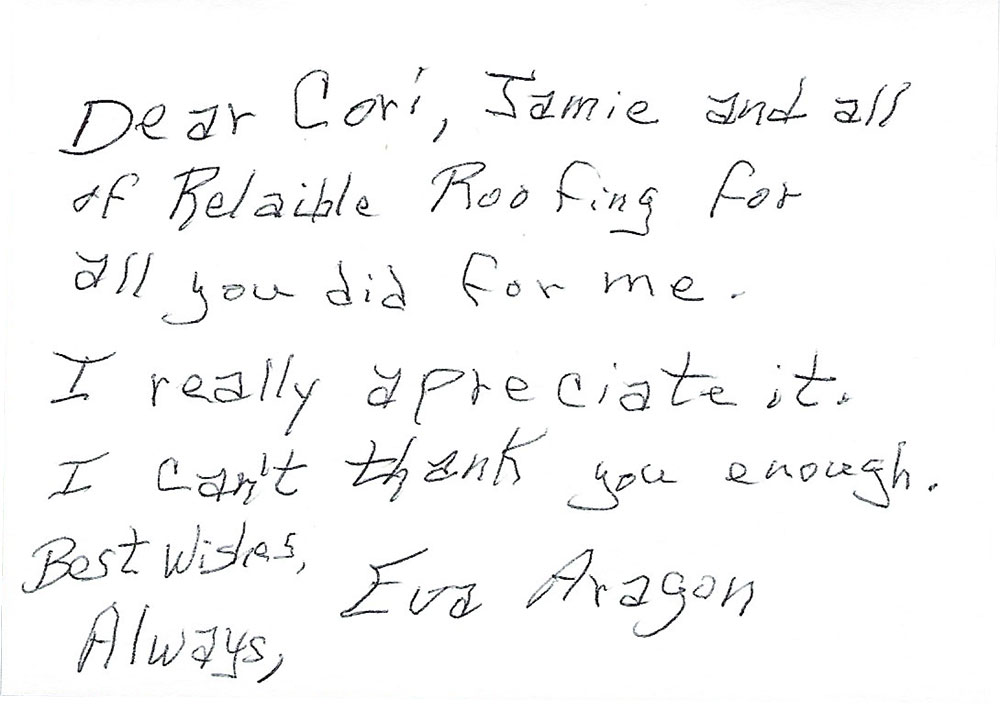 Dear Cori, Jamie and all
of Relaible Roofing for
all you did for me.
I really apreciate it.
I can't thank you enough.
Best Wishes,
Eva Aragon
Always,